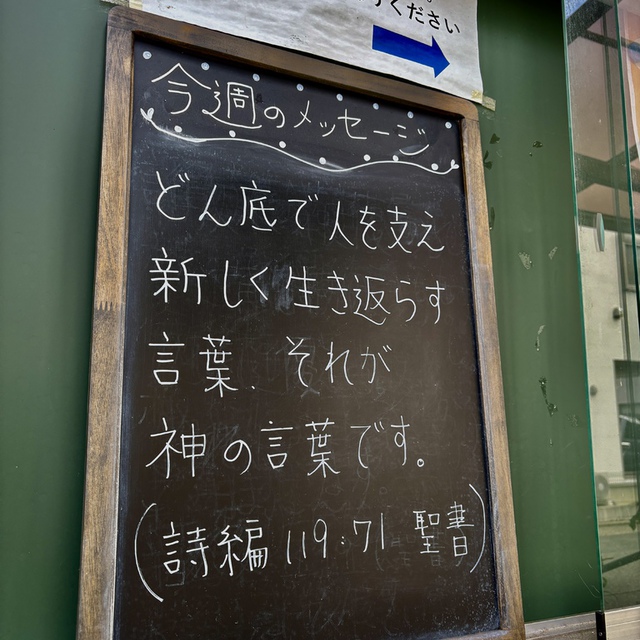 ください
今週のメッセージ
どん底で人を支え
新しく生き返らす
言葉、それが
神の言葉です。
(詩編119:71 聖書)